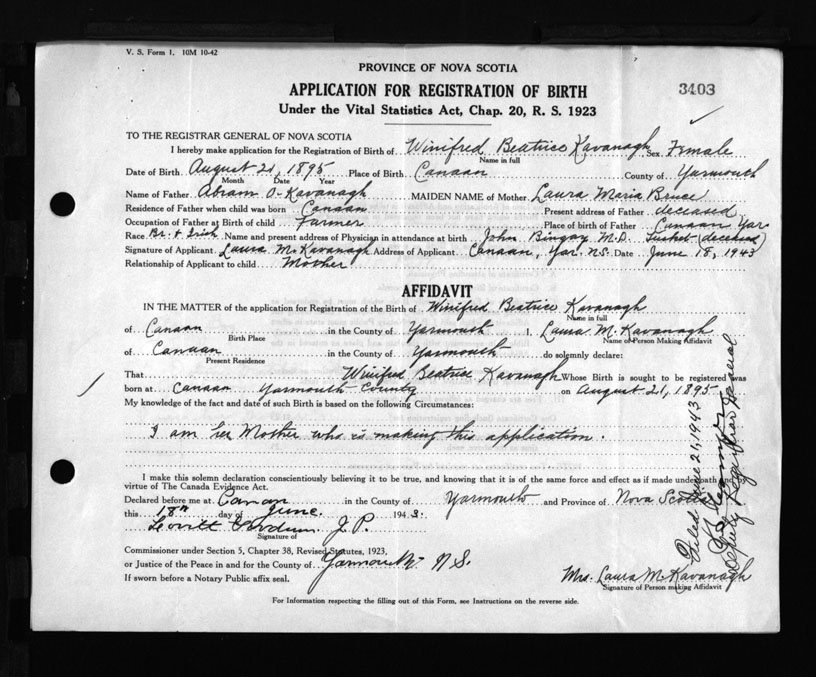 V. S. Form 1. 10M 10-42
PROVINCE OF NOVA SCOTIA
APPLICATION FOR REGISTRATION OF BIRTH
3403
Under the Vital Statistics Act, Chap. 20, R. S. 1923
TO THE REGISTRAR GENERAL OF NOVA SCOTIA
I hereby make application for the Registration of Birth of Winifred Beatrice Kavanagh Sex Female
Name in full
Date of Birth August 21, 1895 Place of Birth Canaan County of Yarmouth
Month Date Year
Name of Father Abram O. Kavanagh MAIDEN NAME of Mother Laura Maria Bruce
Residence of Father when child was born Canaan Present address of Father deceased
Occupation of Father at Birth of child Farmer Place of birth of Father Canaan Yar.
Race Br. & Irish Name and present address of Physician in attendance at birth John Bingay M.D. Tusket (deceased)
Signature of Applicant Laura M. Kavanagh Address of Applicant Canaan, Yar. N.S. Date June 18, 1943
Relationship of Applicant to child Mother
AFFIDAVIT
IN THE MATTER of the application for Registration of the Birth of Winifred Beatrice Kavanagh
Name in full
of Canaan in the County of Yarmouth I, Laura M. Kavanagh
Birth Place Name of Person Making Affidavit
of Canaan in the County of Yarmouth do solemnly declare:
Present Residence
That Winifred Beatrice Kavanagh Whose Birth is sought to be registered was
born at Canaan Yarmouth County on August 21, 1895
My knowledge of the fact and date of such Birth is based on the following Circumstances:
I am her Mother who is making this application.
I make this solemn declaration conscientiously believing it to be true, and knowing that it is of the same force and effect as if made under oath and
virtue of The Canada Evidence Act.
Declared before me at Canan in the County of Yarmouth and Province of Nova Scotia
this 18th day of June 1943.
J. P.
Signature of
Commissioner under Section 5, Chapter 38, Revised Statutes, 1923,
or Justice of the Peace in and for the County of Yarmouth N.S.
If sworn before a Notary Public affix seal.
Mrs. Laura M. Kavanagh
Signature of Person making Affidavit
For Information respecting the filling out of this Form, see Instructions on the reverse side.
Filed June 25, 1943
Deputy Registrar General